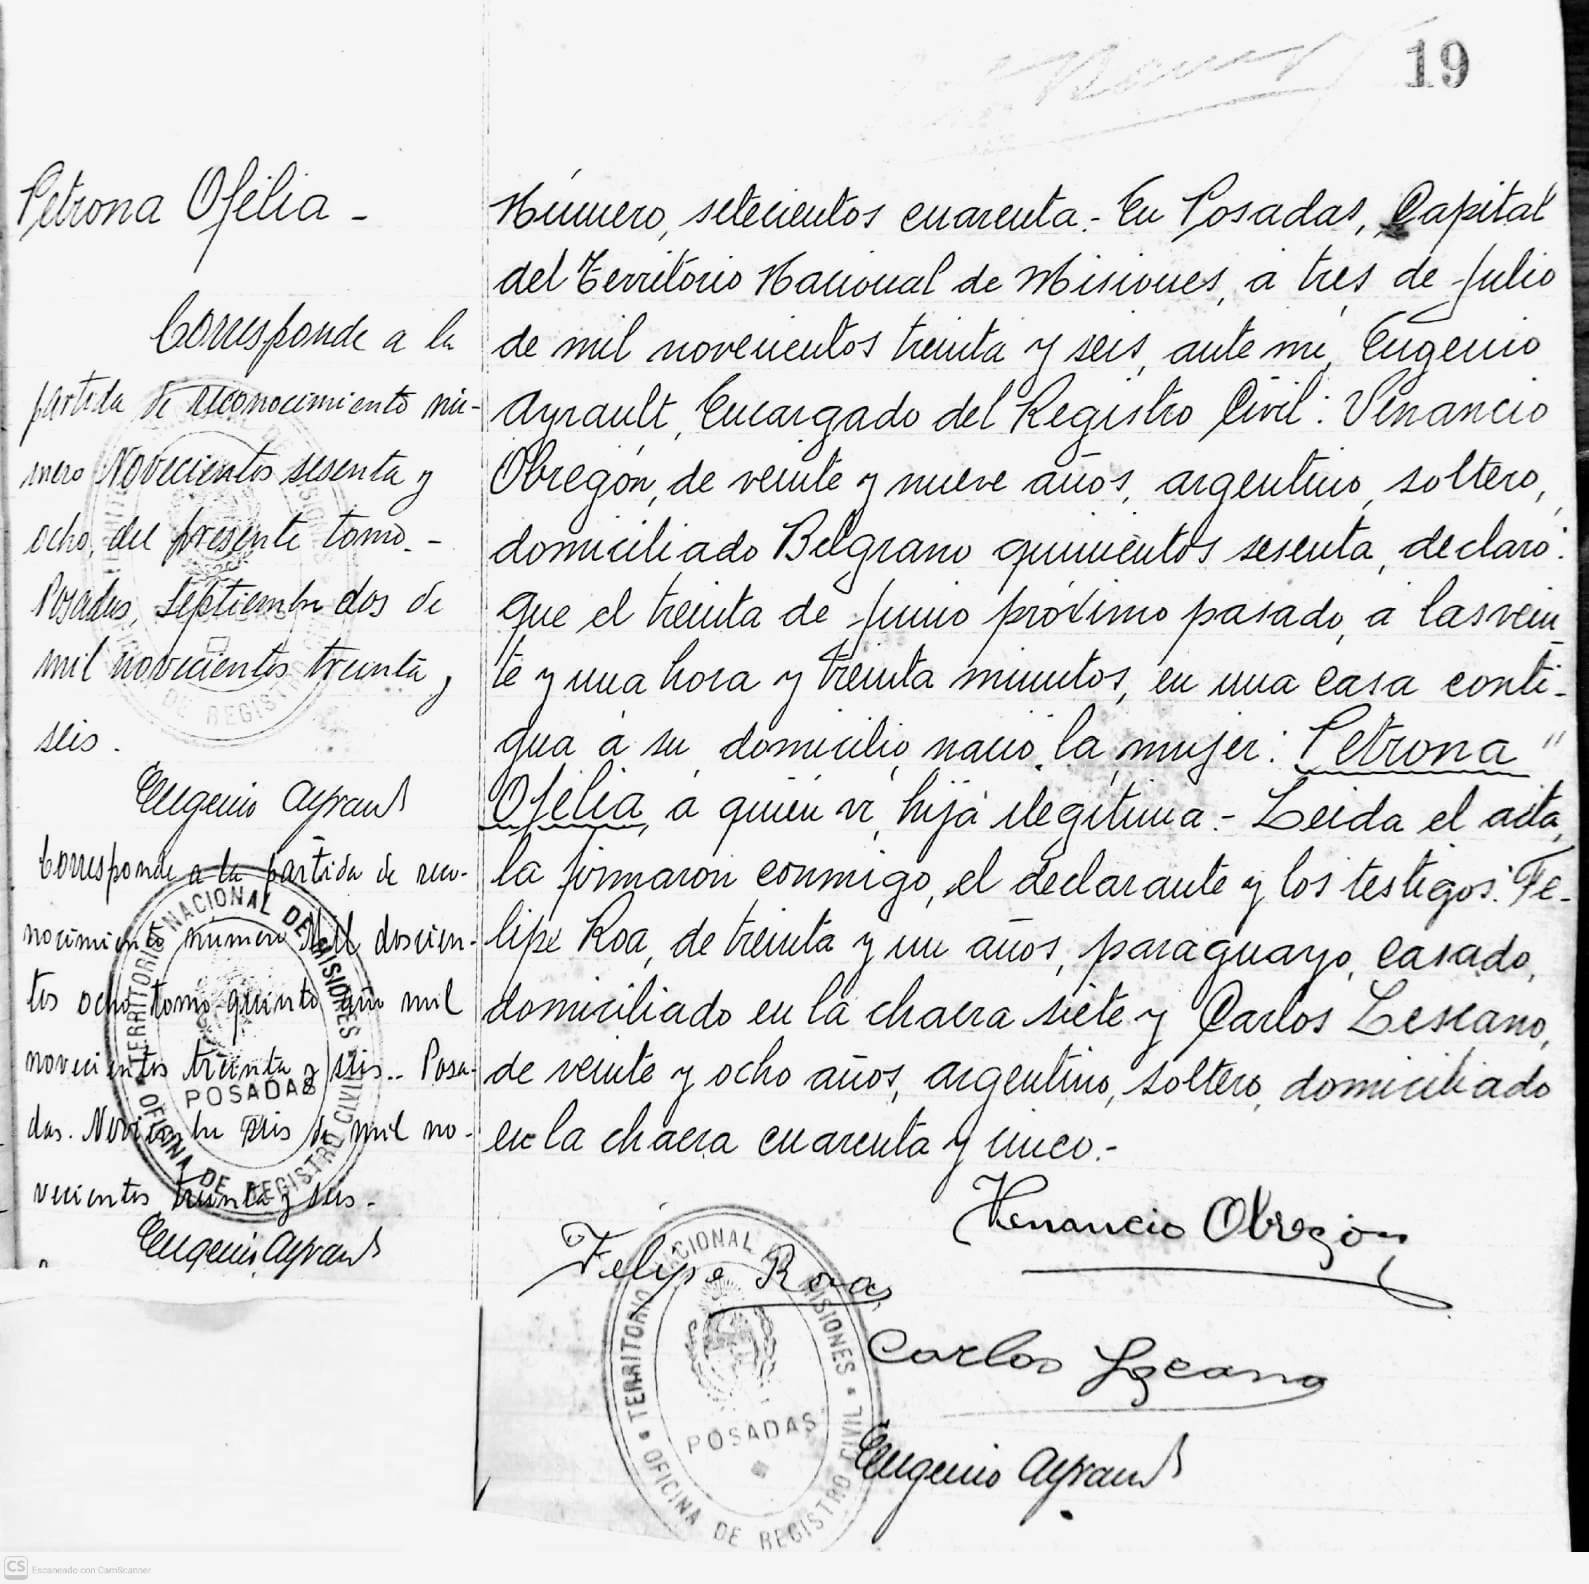 19
Petrona Ofelia -
Corresponde a la
partida de reconocimiento nú-
mero Novecientos sesenta y
ocho, del presente tomo.-
Posadas, Septiembre dos de
mil novecientos treinta y
seis.
Eugenio Ayrault
Corresponde a la partida de reco-
nocimiento número Mil doscien-
tos ocho tomo quinto año mil
novecientos treinta y seis.- Posa-
das. Noviembre seis de mil no-
vecientos treinta y seis.-
Eugenio Ayrault
Número, setecientos cuarenta.- En Posadas, Capital
del Territorio Nacional de Misiones, a tres de Julio
de mil novecientos treinta y seis, ante mi, Eugenio
Ayrault, Encargado del Registro Civil: Venancio
Obregón, de veinte y nueve años, argentino, soltero,
domiciliado Belgrano quinientos sesenta, declaró:
Que el treinta de Junio próximo pasado, a las vein
te y una hora y treinta minutos, en una casa conti-
gua á su domicilio, nació la mujer: Petrona "
Ofelia, á quién ví, hija ilegítima.- Leida el acta,
la firmaron conmigo, el declarante y los testigos: Fe-
lipe Roa, de treinta y un años, paraguayo, casado,
domiciliado en la chacra siete y Carlos Lescano,
de veinte y ocho años, argentino, soltero, domiciliado
en la chacra cuarenta y cinco.-
Venancio Obregón
Felipe Roa
Carlos Lescano
Eugenio Ayrault
TERRITORIO NACIONAL DE MISIONES
POSADAS
OFICINA DE REGISTRO CIVIL
TERRITORIO NACIONAL DE MISIONES
POSADAS
OFICINA DE REGISTRO CIVIL
DE REGISTRO
CS Escaneado con CamScanner